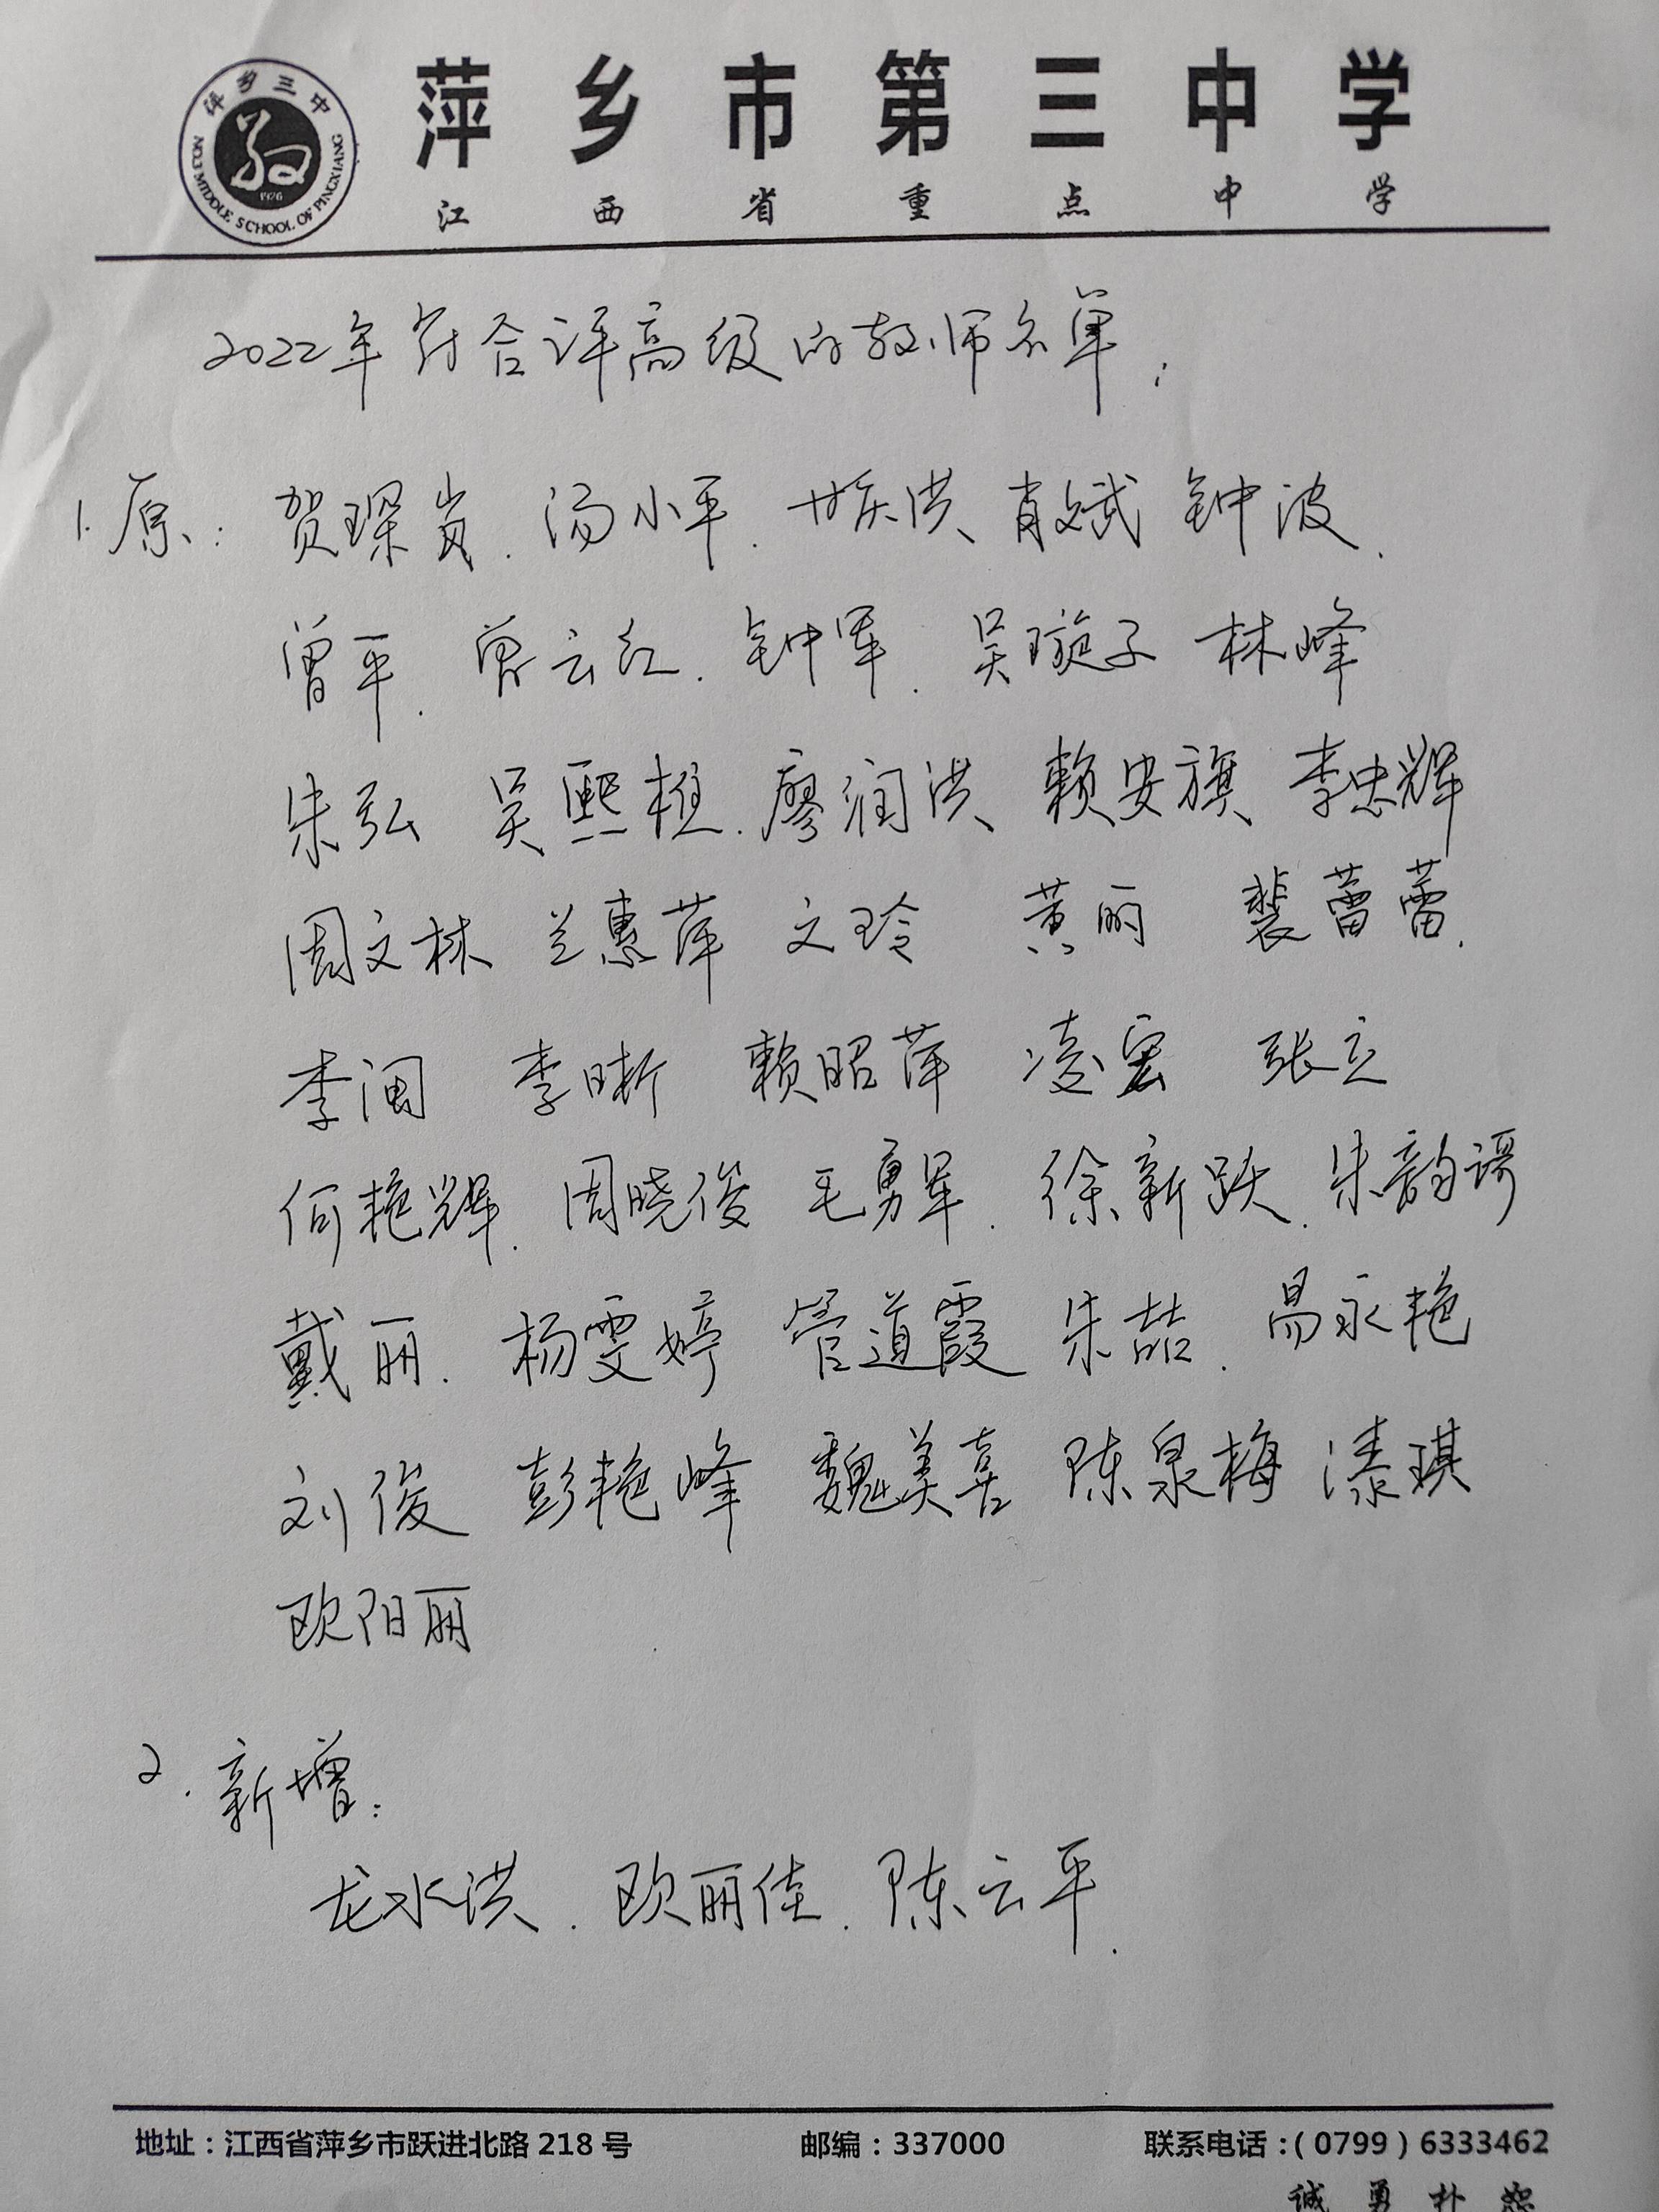 萍乡三中
NO.3 MIDDLE SCHOOL OF PINGXIANG
1926
萍乡市第三中学
江西省重点中学
2022年符合评高级的教师名单:
1.原: 贺琛岚. 汤小平. 洪 肖文斌 钟波.
曾平. 曾云红. 钟军. 吴璇子 林峰
朱弘 吴熙植. 廖润洪 赖安旗 李忠辉
周文林 兰惠萍 文玲 黄丽 裴蕾蕾.
李闽 李晰 赖昭萍 凌宏 张立
何艳辉. 周晓俊 毛勇军. 徐新跃. 朱韵谔
戴丽. 杨雯婷 管道霞 朱喆. 易永艳
刘俊 彭艳峰 魏美喜 陈泉梅 溙琪
欧阳丽
2. 新增:
龙水洪. 欧丽佳. 陈云平.
地址:江西省萍乡市跃进北路218号 邮编:337000 联系电话:(0799)6333462
诚勇朴恕